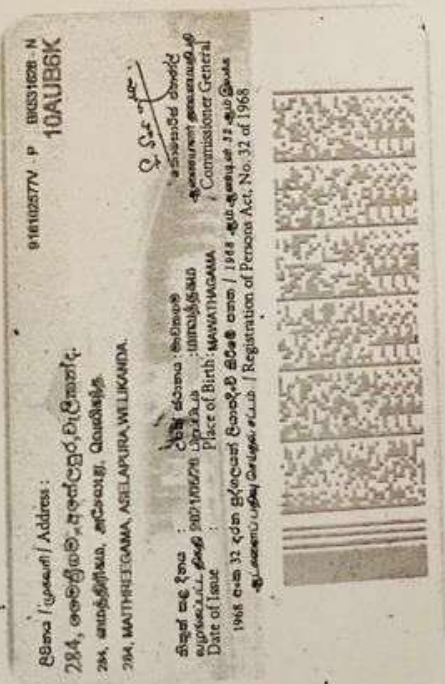 916102577V - P BK531628 - N
10AUB6K
ලිපිනය / முகவரி / Address :
284, මෛත්‍රීගම, අසේලපුර, වැලිකන්ද.
284, மைத்திரிகம, அசேலபுர, வெலிகந்த.
284, MAITHREEGAMA, ASELAPURA, WELIKANDA.
නිකුත් කළ දිනය : උපන් ස්ථානය : මාවතගම
வழங்கப்பட்ட திகதி 2021/06/28 பிறப்பிடம் : மாவத்தகம
Date of Issue : Place of Birth : MAWATHAGAMA
කොමසාරිස් ජනරාල්
ஆணையாளர் தலைமையதிபதி
Commissioner General
1968 අංක 32 දරන පුද්ගලයන් ලියාපදිංචි කිරීමේ පනත / 1968 ஆம் ஆண்டின் 32 ஆம் இலக்க
ஆட்களைப் பதிவு செய்தல் சட்டம் / Registration of Persons Act, No. 32 of 1968